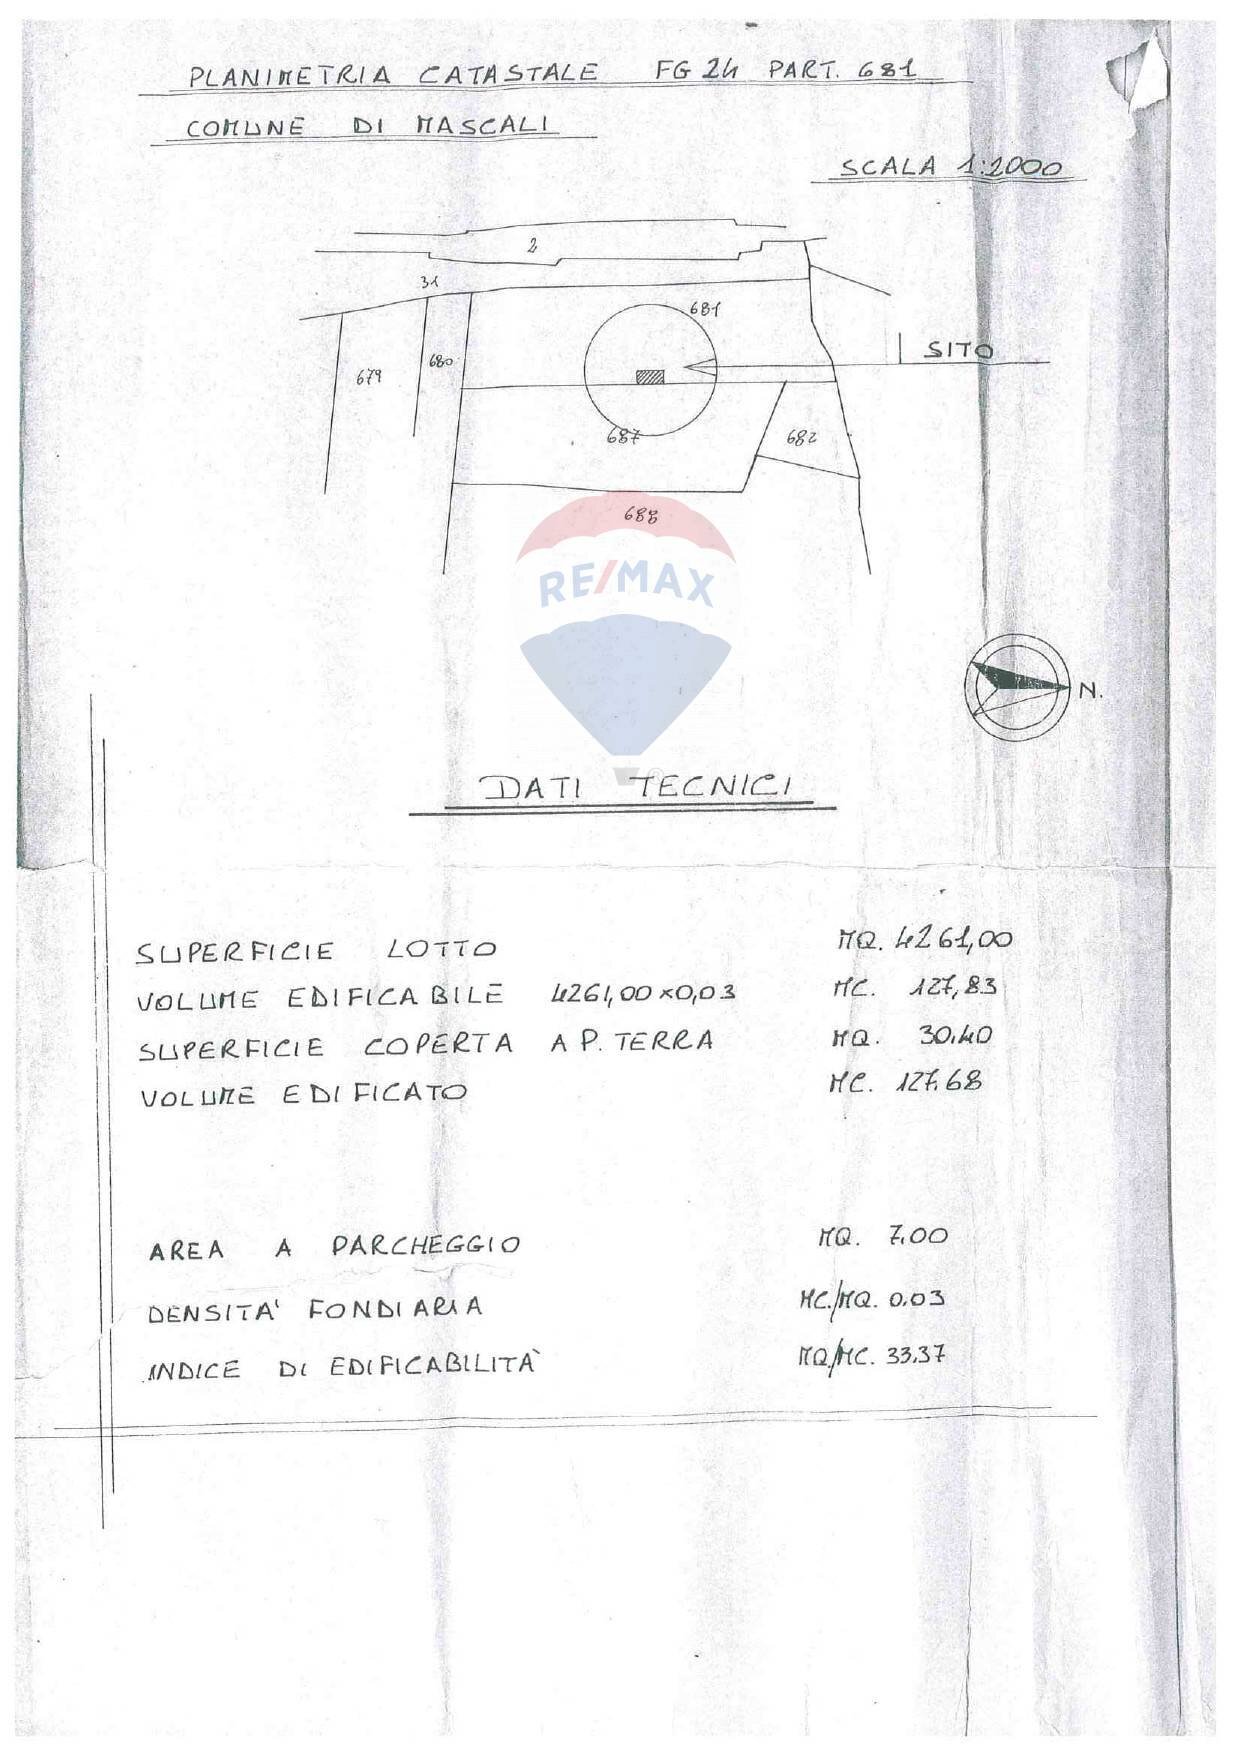 PLANIMETRIA CATASTALE FG 24 PART. 681
COMUNE DI MASCALI
SCALA 1:2000
2
31
681
SITO
679
680
687
682
688
RE/MAX
N.
DATI TECNICI
SUPERFICIE LOTTO MQ. 4261,00
VOLUME EDIFICABILE 4261,00x0,03 MC. 127,83
SUPERFICIE COPERTA A P. TERRA MQ. 30.40
VOLUME EDIFICATO MC. 127.68
AREA A PARCHEGGIO MQ. 7.00
DENSITA' FONDIARIA MC./MQ. 0.03
INDICE DI EDIFICABILITÀ MQ/MC. 33.37